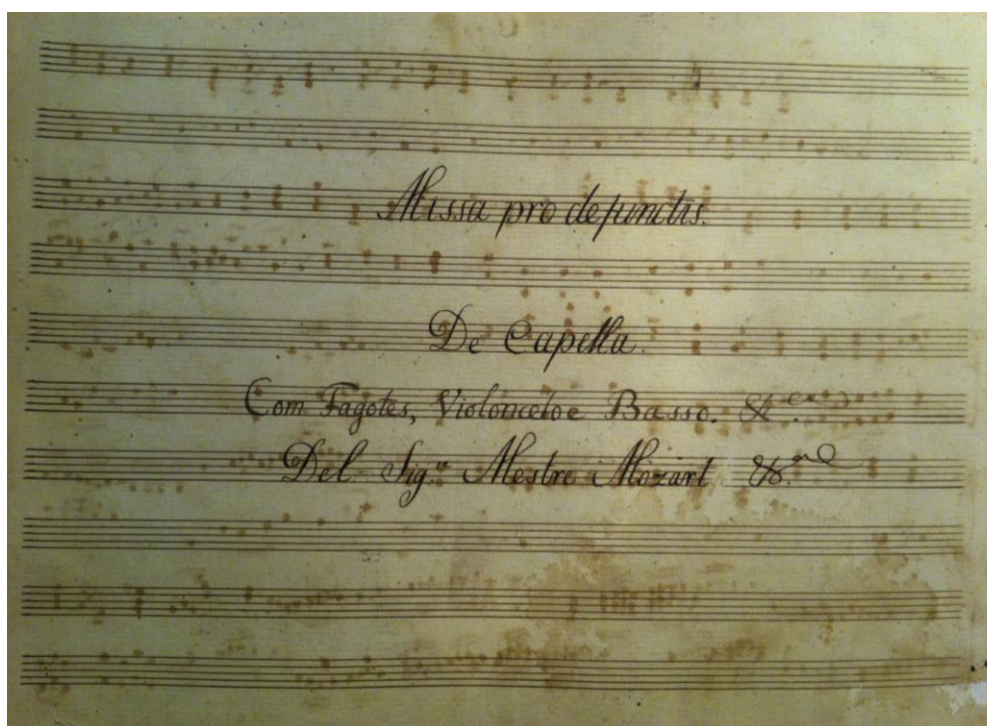 Missa pro defunctis.
De Capella.
Com Fagotes, Violoncelo e Basso. &c.ª
Del Sig.or Mestre Mozart &c.